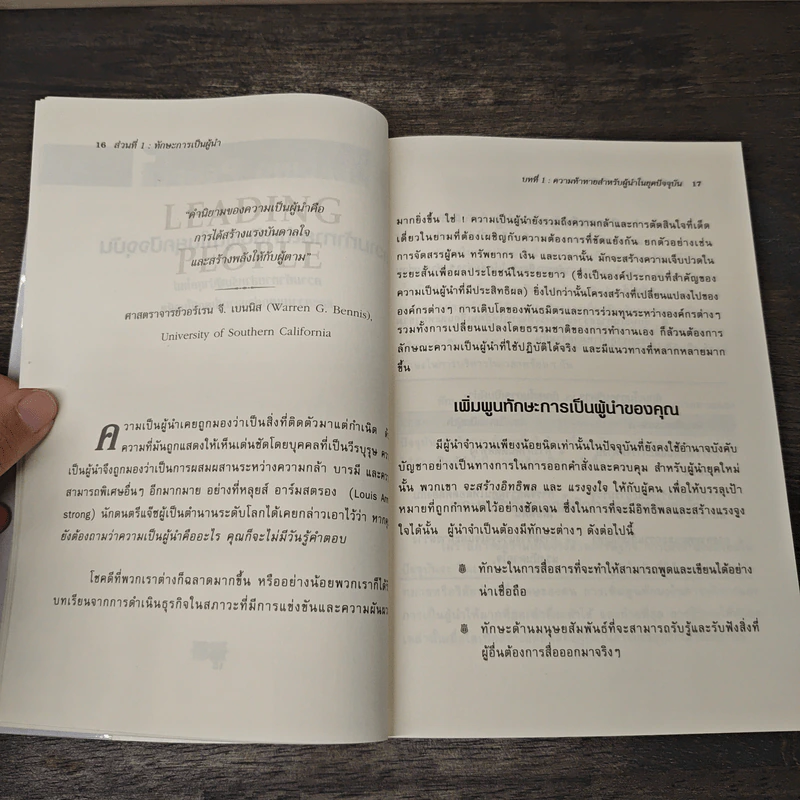 16 ส่วนที่ 1 : ทักษะการเป็นผู้นำ
LEADING
PEOPLE
"คำนิยามของความเป็นผู้นำคือ
การได้สร้างแรงบันดาลใจ
และสร้างพลังให้กับผู้ตาม"
ศาสตราจารย์วอร์เรน จี. เบนนิส (Warren G. Bennis),
University of Southern California
ความเป็นผู้นำเคยถูกมองว่าเป็นสิ่งที่ติดตัวมาแต่กำเนิด
ความที่มันถูกแสดงให้เห็นเด่นชัดโดยบุคคลที่เป็นวีรบุรุษ
เป็นผู้นำจึงถูกมองว่าเป็นการผสมผสานระหว่างความกล้า บารมี และ
สามารถพิเศษอื่นๆ อีกมากมาย อย่างที่หลุยส์ อาร์มสตรอง (Louis Arm
strong) นักดนตรีแจ๊ซผู้เป็นตำนานระดับโลกได้เคยกล่าวเอาไว้ว่า
ยังต้องถามว่าความเป็นผู้นำคืออะไร คุณก็จะไม่มีวันรู้คำตอบ
โชคดีที่พวกเราต่างก็ฉลาดมากขึ้น หรืออย่างน้อยพวกเราก็ได้
บทเรียนจากการดำเนินธุรกิจในสภาวะที่มีการแข่งขันและความผัน
บทที่ 1 : ความท้าทายสำหรับผู้นำในยุคปัจจุบัน 17
มากยิ่งขึ้น ใช่ ! ความเป็นผู้นำยังรวมถึงความกล้าและการตัดสินใจที่เด็ด
เดี่ยวในยามที่ต้องเผชิญกับความต้องการที่ขัดแย้งกัน ยกตัวอย่างเช่น
การจัดสรรผู้คน ทรัพยากร เงิน และเวลานั้น มักจะสร้างความเจ็บปวดใน
ระยะสั้นเพื่อผลประโยชน์ในระยะยาว (ซึ่งเป็นองค์ประกอบที่สำคัญของ
ความเป็นผู้นำที่มีประสิทธิผล) ยิ่งไปกว่านั้นโครงสร้างที่เปลี่ยนแปลงไปของ
องค์กรต่างๆ การเติบโตของพันธมิตรและการร่วมทุนระหว่างองค์กรต่างๆ
รวมทั้งการเปลี่ยนแปลงโดยธรรมชาติของการทำงานเอง ก็ล้วนต้องการ
ลักษณะความเป็นผู้นำที่ใช้ปฏิบัติได้จริง และมีแนวทางที่หลากหลายมาก
ขึ้น
เพิ่มพูนทักษะการเป็นผู้นำของคุณ
มีผู้นำจำนวนเพียงน้อยนิดเท่านั้นในปัจจุบันที่ยังคงใช้อำนาจบังคับ
บัญชาอย่างเป็นทางการในการออกคำสั่งและควบคุม สำหรับผู้นำยุคใหม่
นั้น พวกเขา จะสร้างอิทธิพล และ แรงจูงใจ ให้กับผู้คน เพื่อให้บรรลุเป้า
หมายที่ถูกกำหนดไว้อย่างชัดเจน ซึ่งในการที่จะมีอิทธิพลและสร้างแรงจูง
ใจได้นั้น ผู้นำจำเป็นต้องมีทักษะต่างๆ ดังต่อไปนี้
ทักษะในการสื่อสารที่จะทำให้สามารถพูดและเขียนได้อย่าง
น่าเชื่อถือ
ทักษะด้านมนุษยสัมพันธ์ที่จะสามารถรับรู้และรับฟังสิ่งที่
ผู้อื่นต้องการสื่อออกมาจริงๆ